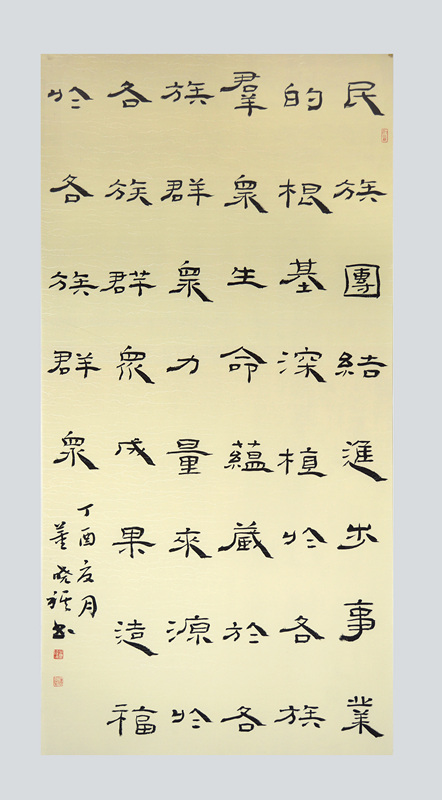 民族團結進步事業
的根基深植於各族
羣衆生命蘊藏於各
族群衆力量來源於
各族群衆成果造福
於各族群衆
丁酉夏月
董晓书